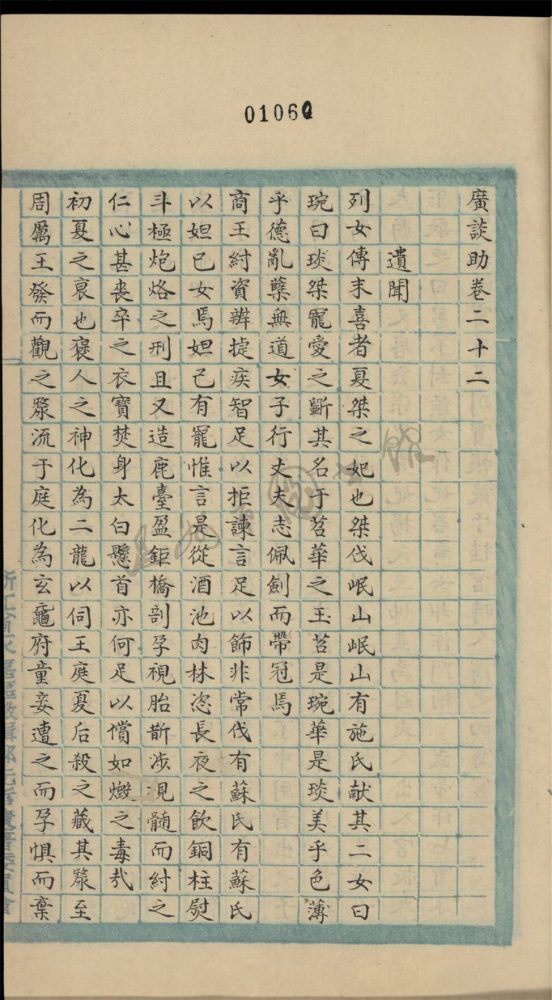 01060
廣談助卷二十二
遺聞
列女傳末喜者夏桀之妃也桀伐岷山岷山有施氏献其二女曰
琬曰琰桀寵愛之斷其名于苕華之玉苕是琬華是琰美乎色薄
乎德亂孽無道女子行丈夫志佩劍而帶冠焉
商王紂資辨捷疾智足以拒諫言足以飾非常伐有蘇氏有蘇氏
以妲己女焉妲己有寵惟言是從酒池肉林恣長夜之飲銅柱熨
斗極炮烙之刑且又造鹿臺盈鉅橋剖孕視胎斮涉現髓而紂之
仁心甚喪卒之衣寶焚身太白懸首亦何足以償如燬之毒哉
初夏之衰也褒人之神化為二龍以伺王庭夏后殺之藏其漦至
周厲王發而觀之漦流于庭化為玄黿府童妾遭之而孕惧而棄